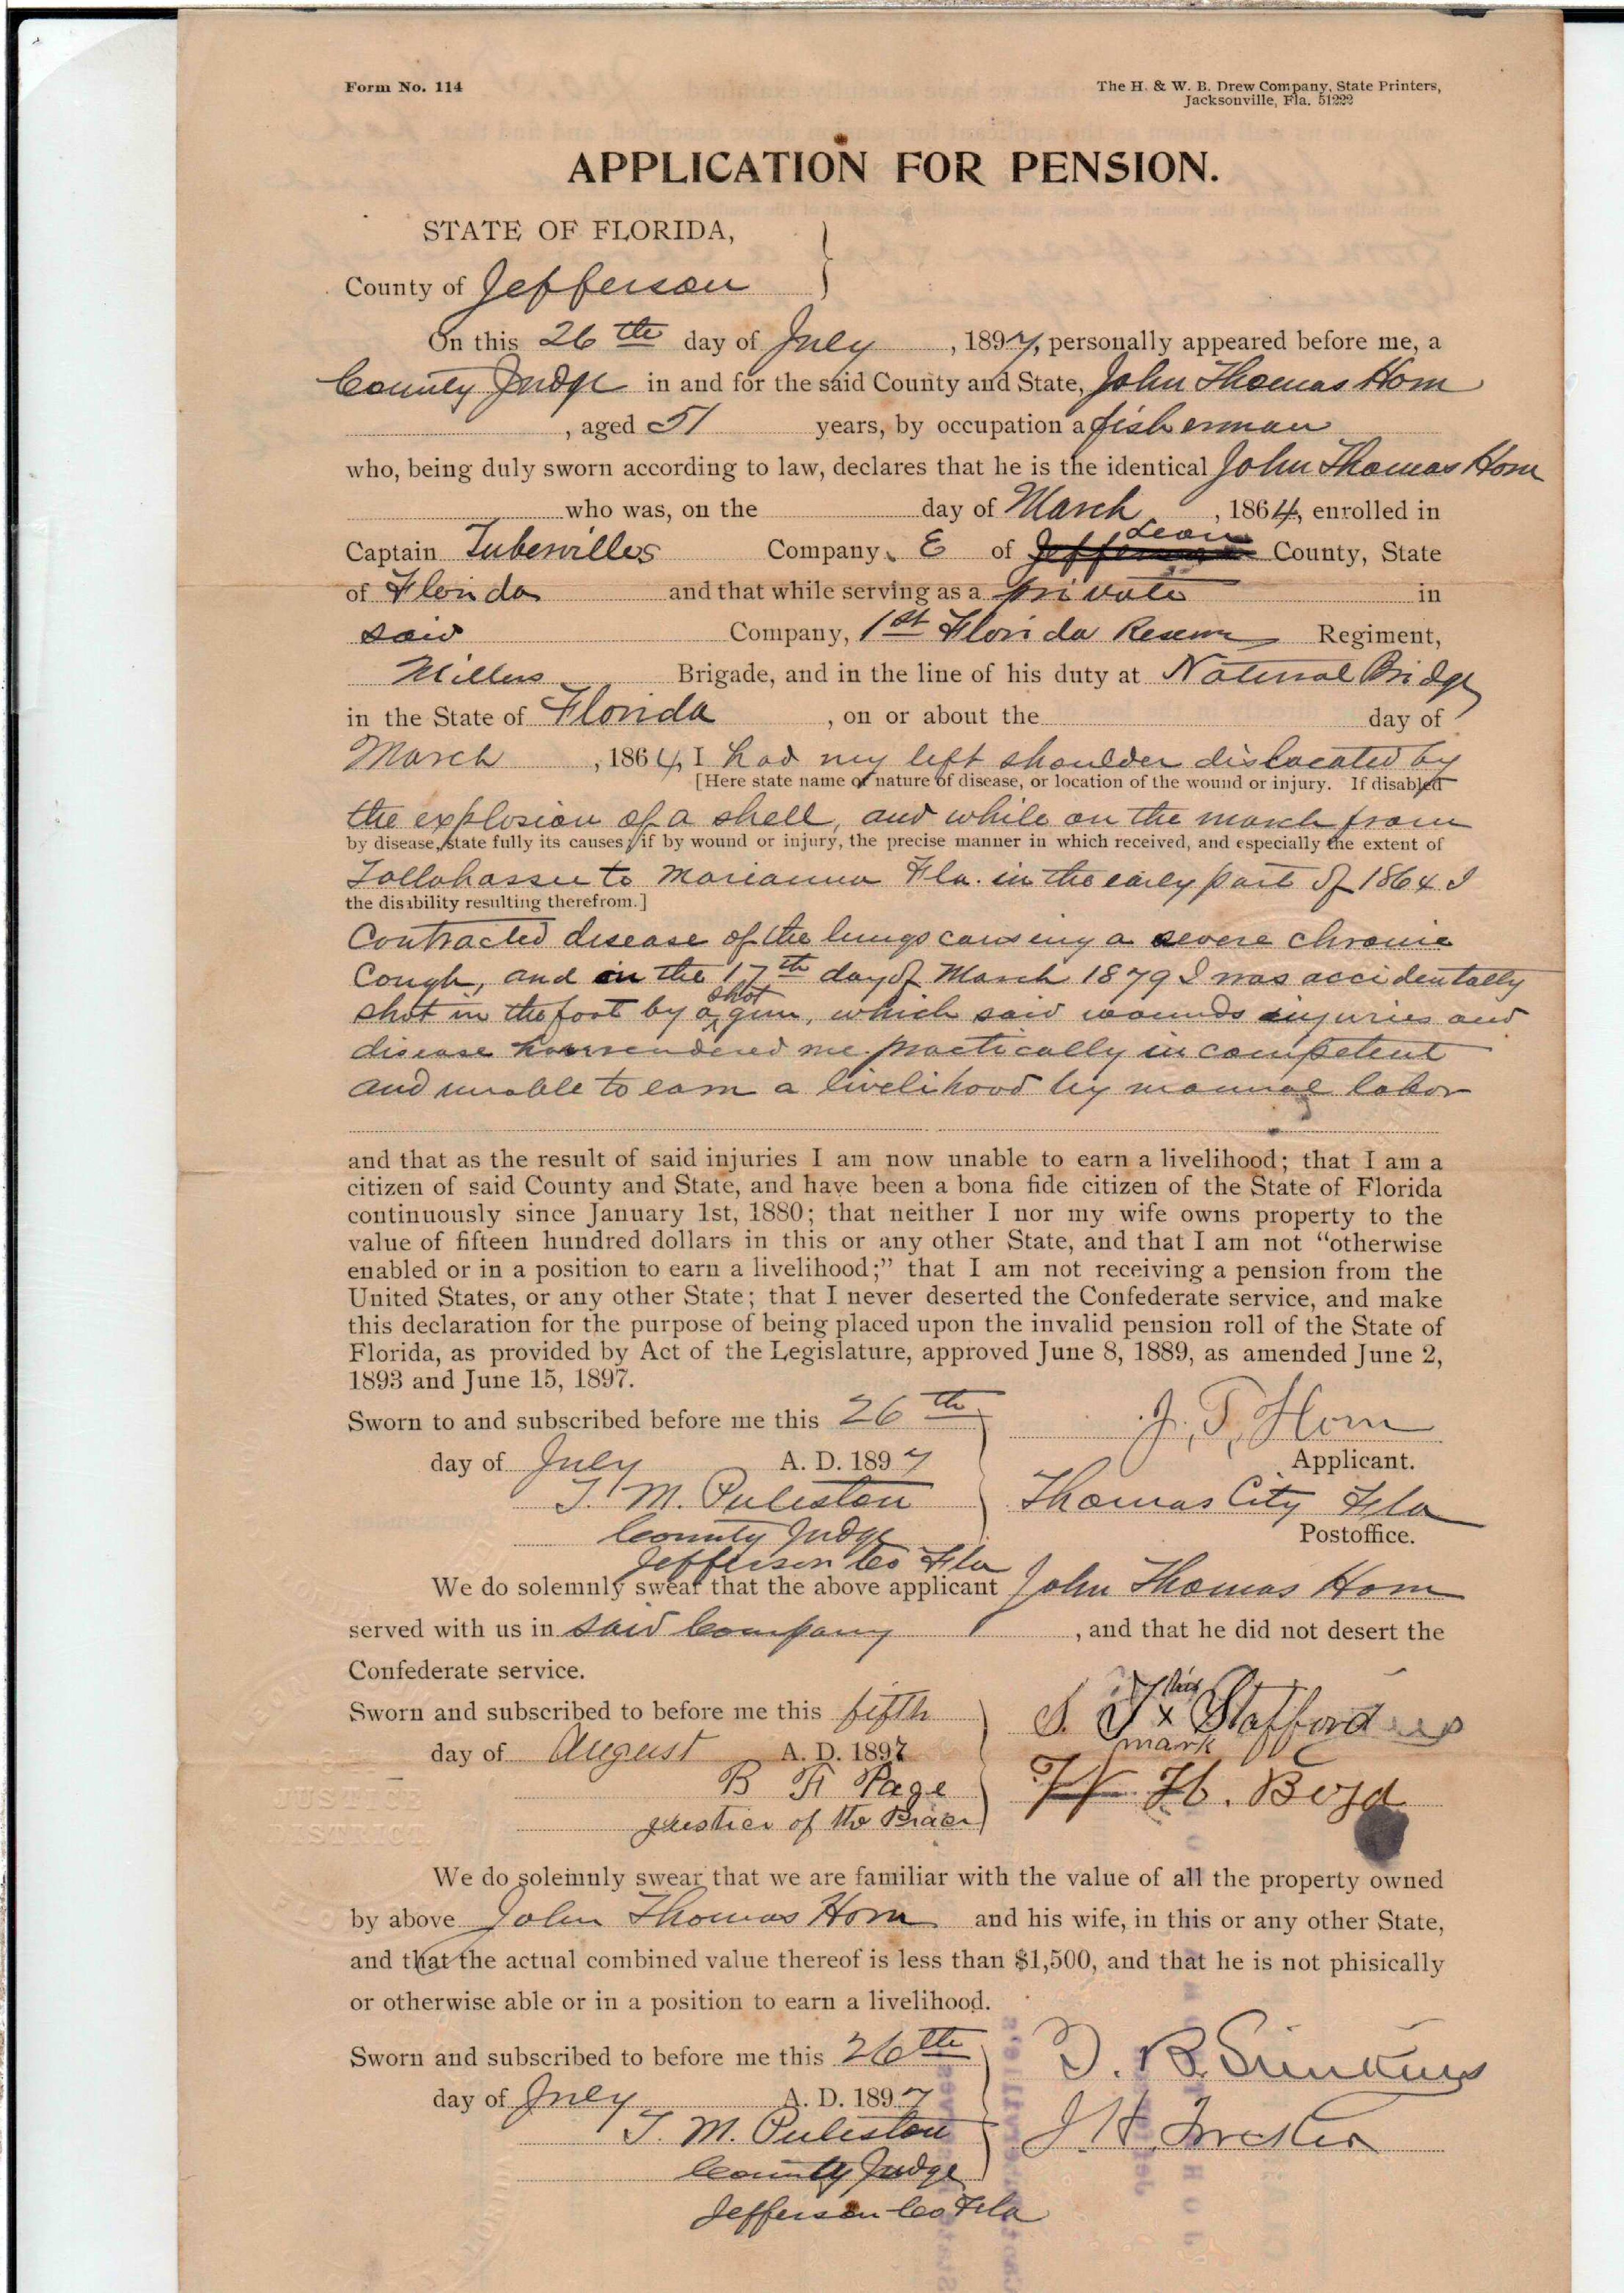 Form No. 114
The H. & W. B. Drew Company, State Printers,
Jacksonville, Fla. 51222
APPLICATION FOR PENSION.
STATE OF FLORIDA,
County of Jefferson
On this 26th day of July, 1897, personally appeared before me, a
County Judge in and for the said County and State, John Thomas Horn
, aged 51 years, by occupation a fisherman
who, being duly sworn according to law, declares that he is the identical John Thomas Horn
who was, on the day of March, 1864, enrolled in
Captain Tubervilles Company E of Leon County, State
of Florida and that while serving as a private in
said Company, 1st Florida Reserve Regiment,
Millers Brigade, and in the line of his duty at Natural Bridge
in the State of Florida, on or about the day of
March, 1864, I had my left shoulder dislocated by
[Here state name or nature of disease, or location of the wound or injury. If disabled
the explosion of a shell, and while on the march from
by disease, state fully its causes; if by wound or injury, the precise manner in which received, and especially the extent of
Tallahassee to Marianna Fla. in the early part of 1864 I
the disability resulting therefrom.]
Contracted disease of the lungs causing a severe chronic
Cough, and on the 17th day of March 1879 I was accidentally
shot in the foot by a shot gun, which said wounds injuries and
disease have rendered me practically incompetent
and unable to earn a livelihood by manual labor
and that as the result of said injuries I am now unable to earn a livelihood; that I am a
citizen of said County and State, and have been a bona fide citizen of the State of Florida
continuously since January 1st, 1880; that neither I nor my wife owns property to the
value of fifteen hundred dollars in this or any other State, and that I am not "otherwise
enabled or in a position to earn a livelihood;" that I am not receiving a pension from the
United States, or any other State; that I never deserted the Confederate service, and make
this declaration for the purpose of being placed upon the invalid pension roll of the State of
Florida, as provided by Act of the Legislature, approved June 8, 1889, as amended June 2,
1893 and June 15, 1897.
Sworn to and subscribed before me this 26th
J. T. Horn
day of July A. D. 1897
Applicant.
T. M. Puleston
Thomas City Fla
County Judge
Postoffice.
Jefferson Co Fla
We do solemnly swear that the above applicant John Thomas Horn
served with us in said Company, and that he did not desert the
Confederate service.
Sworn and subscribed to before me this fifth
S. T. his x mark Stafford
day of August A. D. 1897
B F Page
H. Boyd
justice of the Peace
We do solemnly swear that we are familiar with the value of all the property owned
by above John Thomas Horn and his wife, in this or any other State,
and that the actual combined value thereof is less than $1,500, and that he is not phisically
or otherwise able or in a position to earn a livelihood.
Sworn and subscribed to before me this 26th
B. Simkins
day of July A. D. 1897
T. M. Puleston
J. H.
County Judge
Jefferson Co Fla
JUSTICE
DISTRICT